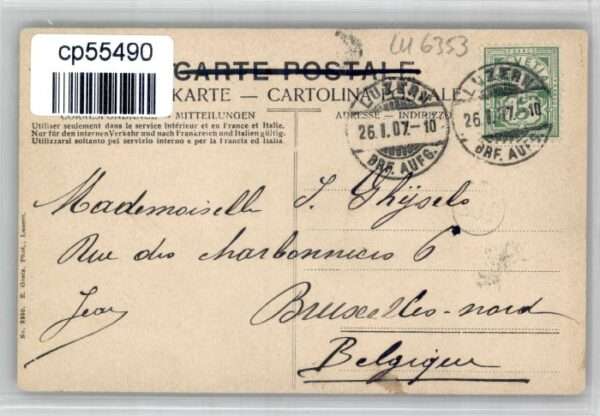 cp55490
LU 6353
CARTE POSTALE
KARTE — CARTOLINA
MITTEILUNGEN
ADRESSE — INDIRIZZO
Utiliser seulement dans le service intérieur et en France et Italie.
Nur für den internen Verkehr und nach Frankreich und Italien gültig.
Utilizzarsi soltanto pel servizio interno e per la Francia ed Italia
LUZERN
26.I.07.-10
BRF. AUFG.
LUZERN
26.I.07.-10
BRF. AUFG.
Mademoiselle J. Ghÿsels
Rue des charbonniers 6
Jean
Bruxelles-nord
Belgique
E. Goetz, Phot., Luzern.